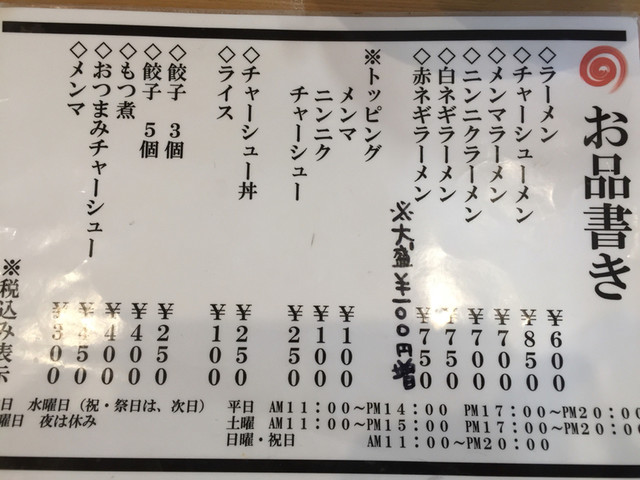 お品書き
◇ラーメン ¥600
◇チャーシューメン ¥850
◇メンマラーメン ¥700
◇ニンニクラーメン ¥700
◇白ネギラーメン ¥750
◇赤ネギラーメン ¥750
※大盛¥100円増
※トッピング
メンマ ¥100
ニンニク ¥100
チャーシュー ¥250
◇チャーシュー丼 ¥250
◇ライス ¥100
◇餃子 3個 ¥250
◇餃子 5個 ¥400
◇もつ煮 ¥400
◇おつまみチャーシュー ¥450
◇メンマ ¥300
※税込み表示
日 水曜日（祝・祭日は、次日） 平日 AM11:00～PM14:00 PM17:00～PM20:00
曜日 夜は休み 土曜 AM11:00～PM15:00 PM17:00～PM20:0
日曜・祝日 AM11:00～PM20:00